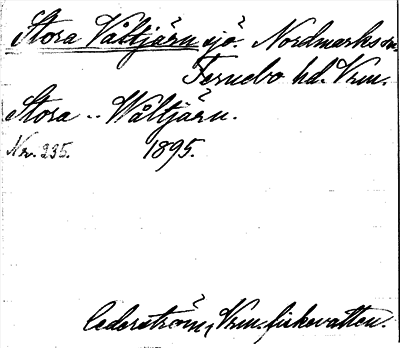 Stora Våltjärn sjö. Nordmarks sn.
Fernebo hd. Vrm.
Stora .. Wåltjärn.
Nr. 235. 1895.
Cederström, Vrm. fiskevatten.